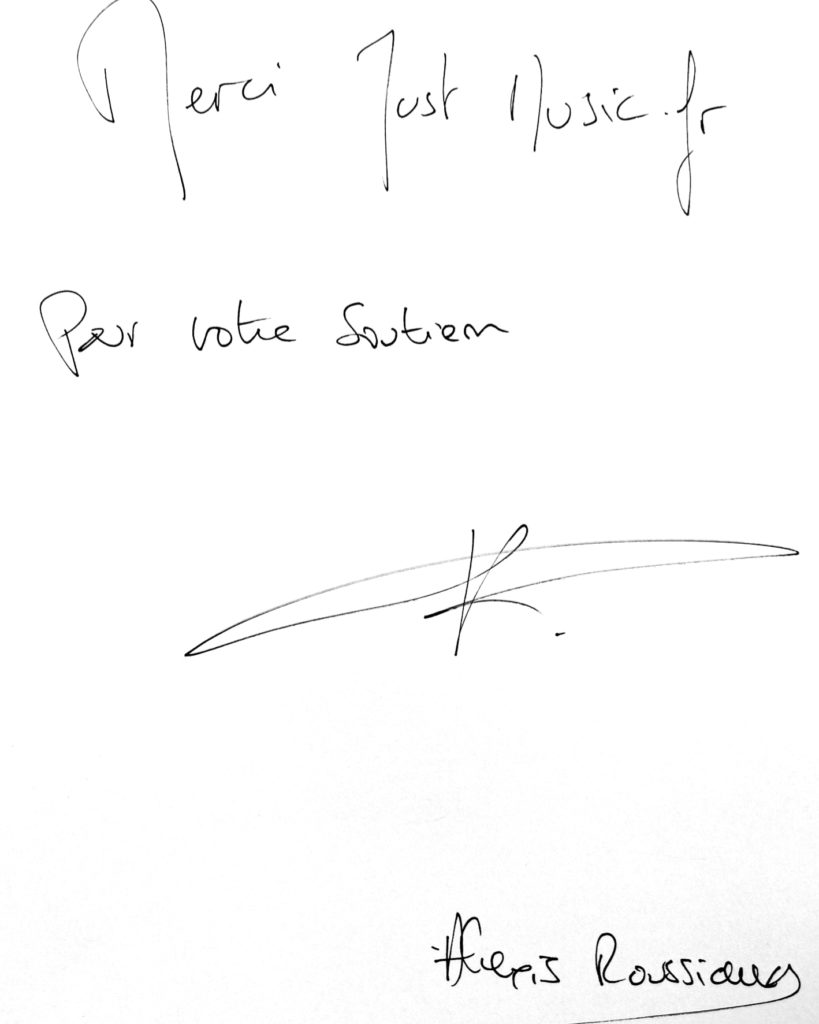 Merci Just Music.fr
Pour votre Soutien
Alexis